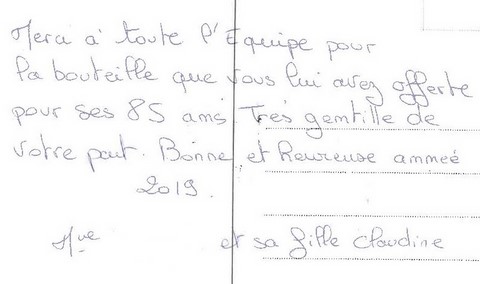 Merci à toute l'Equipe pour
la bouteille que vous lui avez offerte
pour ses 85 ans. Très gentille de
votre part. Bonne et heureuse année
2019.
Mme et sa fille Claudine